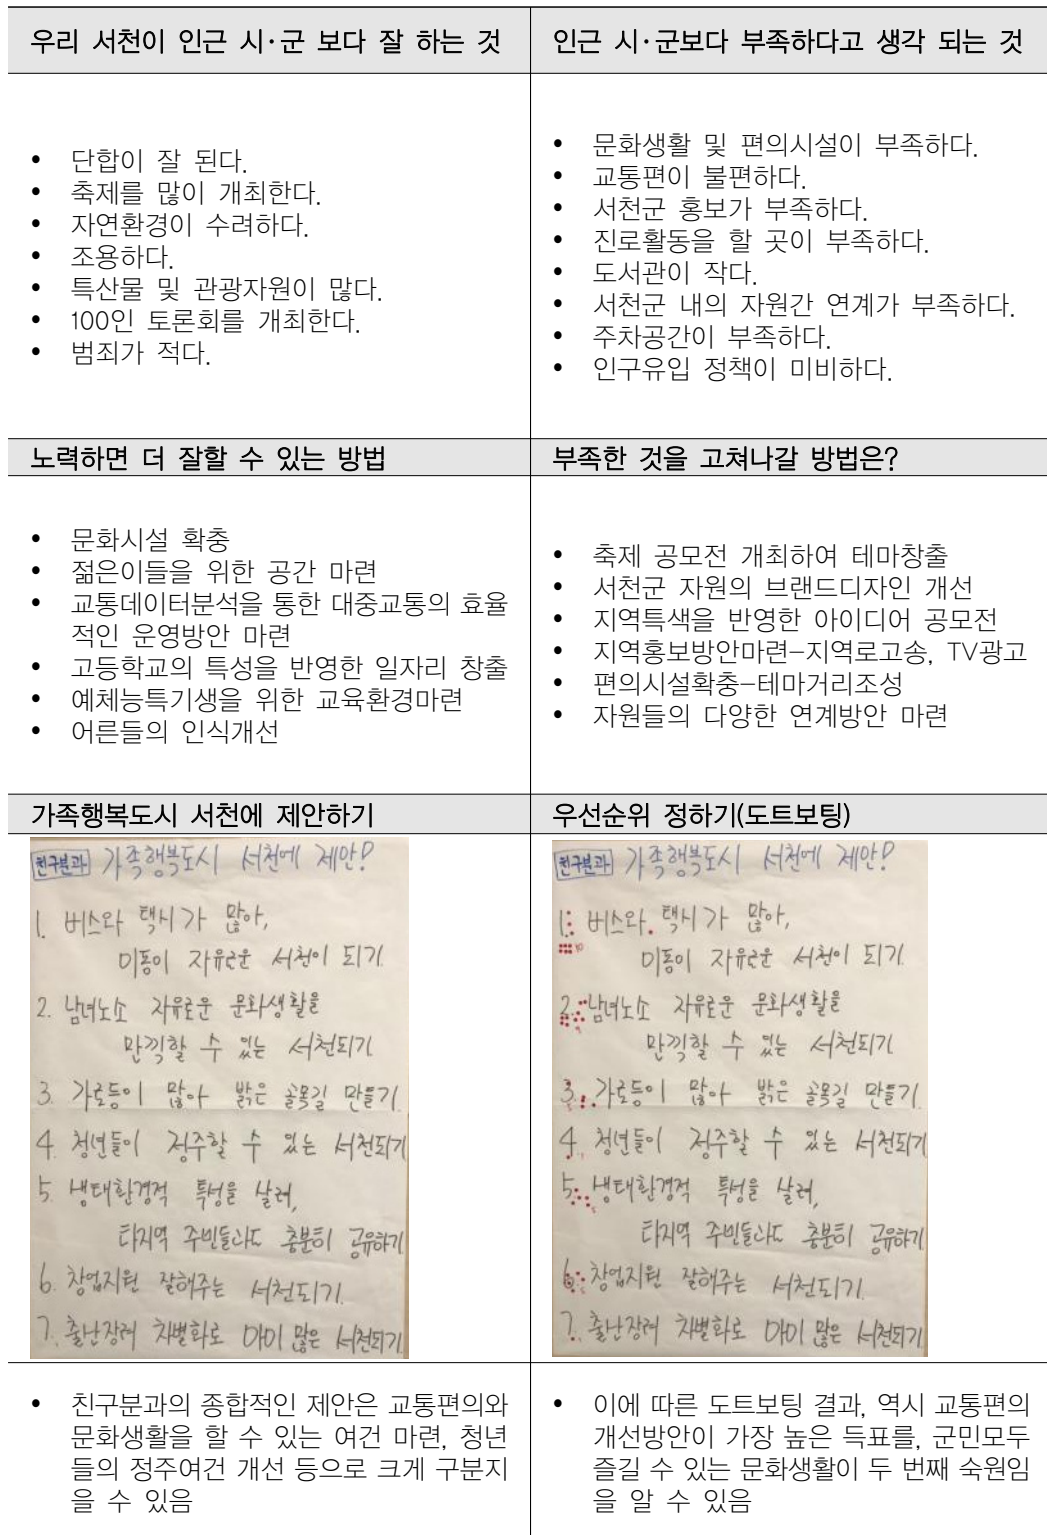 우리 서천이 인근 시·군 보다 잘 하는 것
인근 시·군보다 부족하다고 생각 되는 것
• 단합이 잘 된다.
• 축제를 많이 개최한다.
• 자연환경이 수려하다.
• 조용하다.
• 특산물 및 관광자원이 많다.
• 100인 토론회를 개최한다.
• 범죄가 적다.
• 문화생활 및 편의시설이 부족하다.
• 교통편이 불편하다.
• 서천군 홍보가 부족하다.
• 진로활동을 할 곳이 부족하다.
• 도서관이 작다.
• 서천군 내의 자원간 연계가 부족하다.
• 주차공간이 부족하다.
• 인구유입 정책이 미비하다.
노력하면 더 잘할 수 있는 방법
부족한 것을 고쳐나갈 방법은?
• 문화시설 확충
• 젊은이들을 위한 공간 마련
• 교통데이터분석을 통한 대중교통의 효율
적인 운영방안 마련
• 고등학교의 특성을 반영한 일자리 창출
• 예체능특기생을 위한 교육환경마련
• 어른들의 인식개선
• 축제 공모전 개최하여 테마창출
• 서천군 자원의 브랜드디자인 개선
• 지역특색을 반영한 아이디어 공모전
• 지역홍보방안마련-지역로고송, TV광고
• 편의시설확충-테마거리조성
• 자원들의 다양한 연계방안 마련
가족행복도시 서천에 제안하기
우선순위 정하기(도트보팅)
친구분과 가족행복도시 서천에 제안!
1. 버스와 택시가 많아,
이동이 자유로운 서천이 되기
2. 남녀노소 자유로운 문화생활을
만끽할 수 있는 서천되기
3. 가로등이 많아 밝은 골목길 만들기
4. 청년들이 정주할 수 있는 서천되기
5. 생태환경적 특성을 살려,
타지역 주민들과도 충분히 공유하기
6. 창업지원 잘해주는 서천되기
7. 출난장려 차별화로 아이 많은 서천되기
친구분과 가족행복도시 서천에 제안!
1. 버스와 택시가 많아,
이동이 자유로운 서천이 되기
2. 남녀노소 자유로운 문화생활을
만끽할 수 있는 서천되기
3. 가로등이 많아 밝은 골목길 만들기
4. 청년들이 정주할 수 있는 서천되기
5. 생태환경적 특성을 살려,
타지역 주민들과도 충분히 공유하기
6. 창업지원 잘해주는 서천되기
7. 출난장려 차별화로 아이 많은 서천되기
• 친구분과의 종합적인 제안은 교통편의와
문화생활을 할 수 있는 여건 마련, 청년
들의 정주여건 개선 등으로 크게 구분지
을 수 있음
• 이에 따른 도트보팅 결과, 역시 교통편의
개선방안이 가장 높은 득표를, 군민모두
즐길 수 있는 문화생활이 두 번째 숙원임
을 알 수 있음